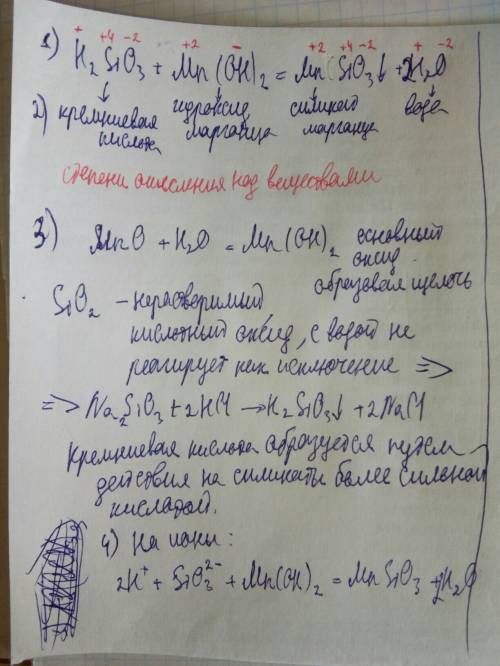 + +4 -2 +2 - +2 +4 -2 + -2
1) H₂SiO₃ + Mn(OH)₂ = MnSiO₃↓ + 2H₂O
2) кремниевая гидроксид силикат вода
кислота марганца марганца
степени окисления над веществами
3) MnO + H₂O = Mn(OH)₂ основный
оксид
образовал щелочь
SiO₂ – нерастворимый
кислотный оксид, с водой не
реагирует как исключение =>
=> Na₂SiO₃ + 2HCl → H₂SiO₃↓ + 2NaCl
Кремниевая кислота образуется путем
действия на силикаты более сильной
кислотой.
4) На ионы:
2H⁺ + SiO₃²⁻ + Mn(OH)₂ = MnSiO₃ + 2H₂O